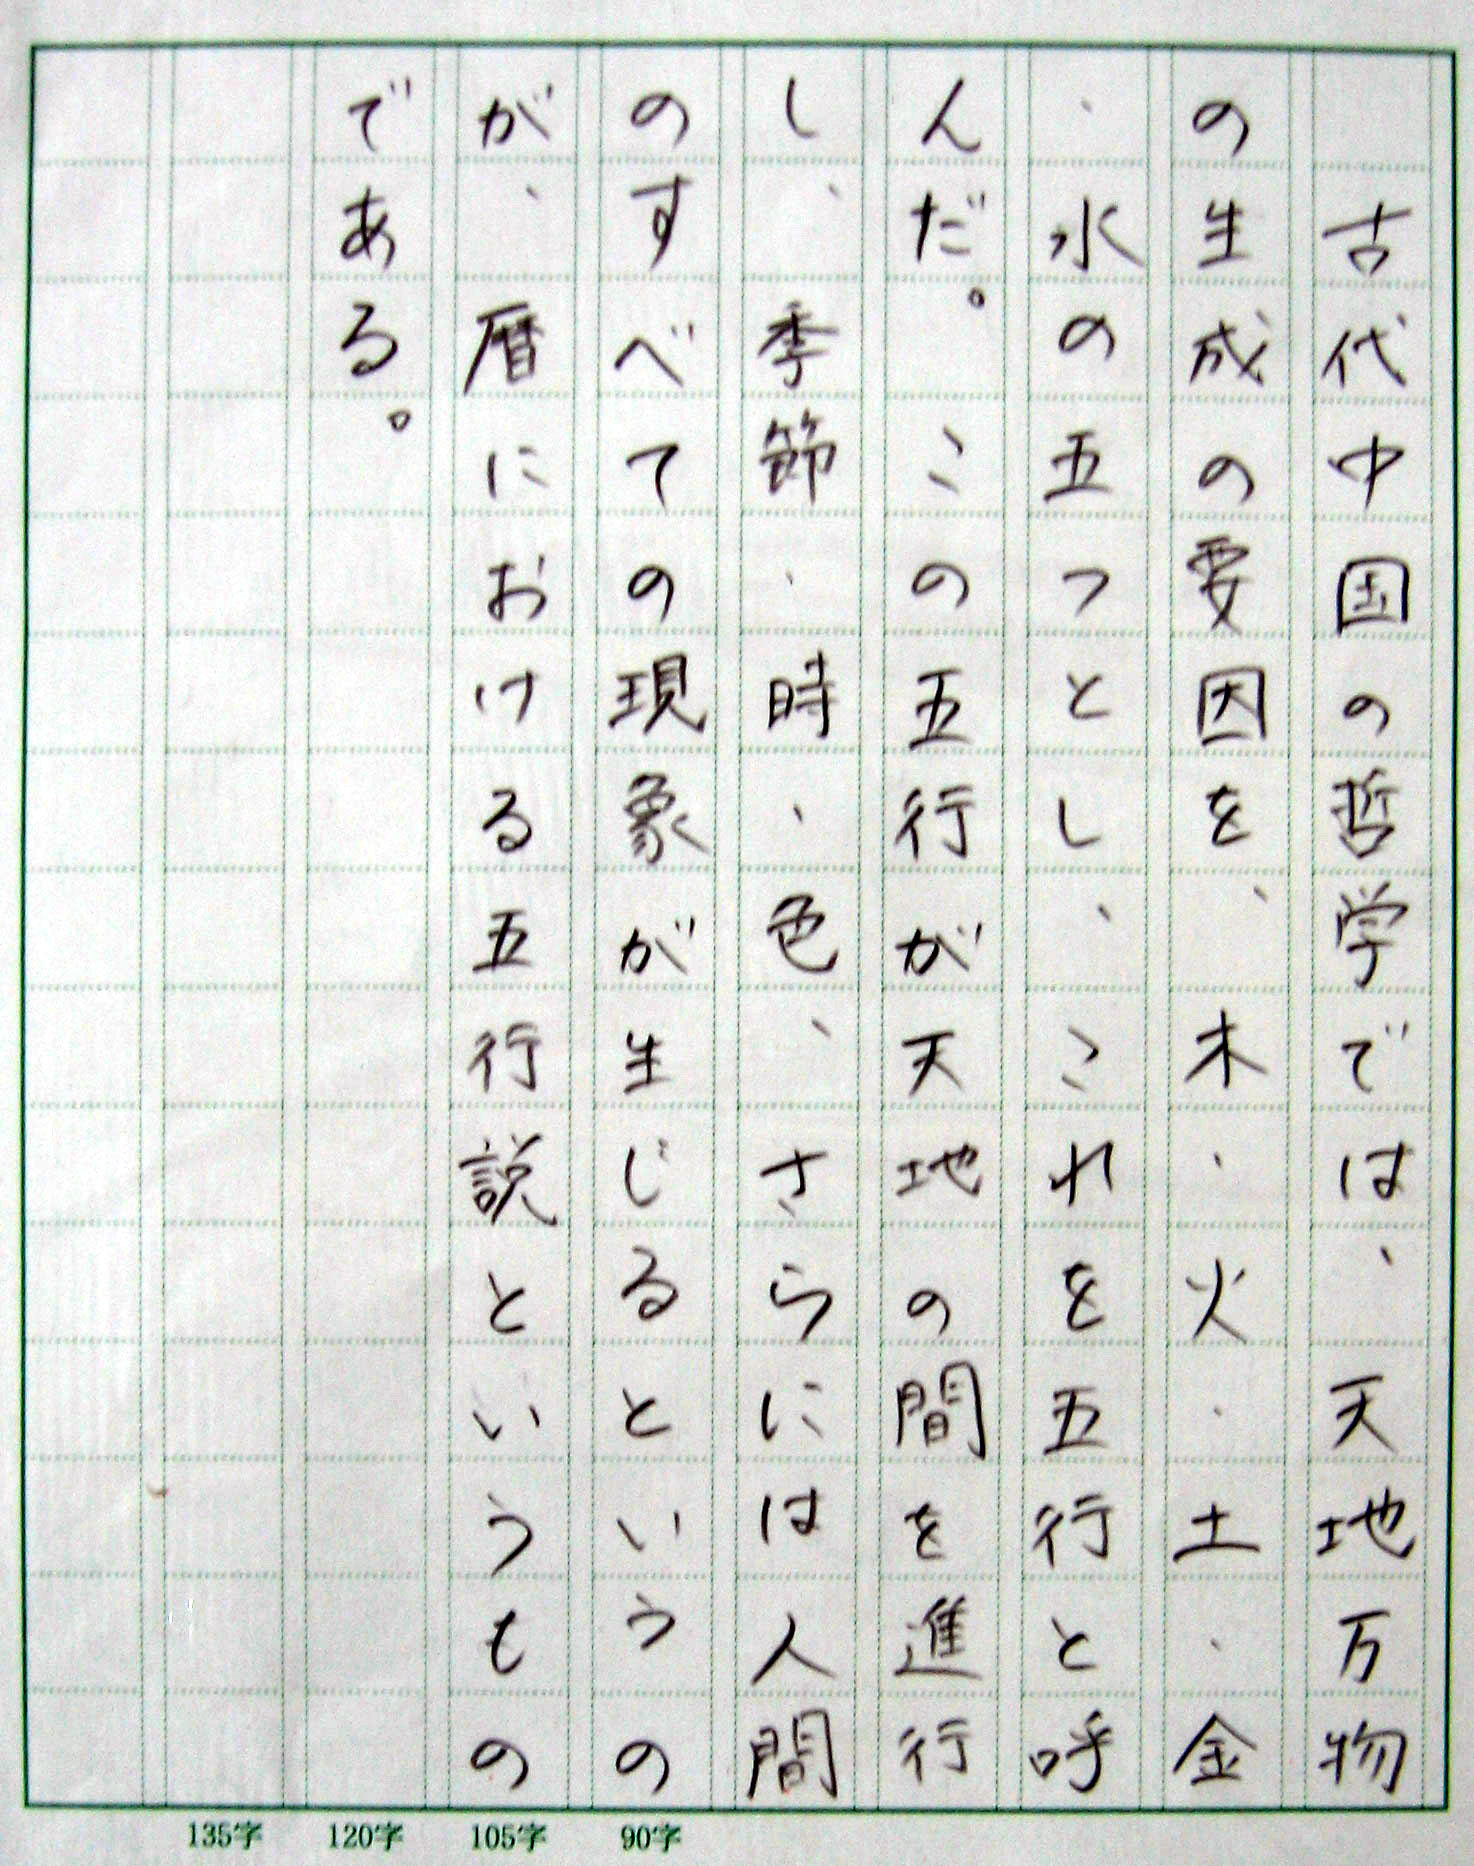 古代中国の哲学では、天地万物
の生成の要因を、木・火・土・金
・水の五つとし、これを五行と呼
んだ。この五行が天地の間を進行
し、季節・時・色、さらには人間
のすべての現象が生じるというの
が、暦における五行説というもの
である。
90字
105字
120字
135字